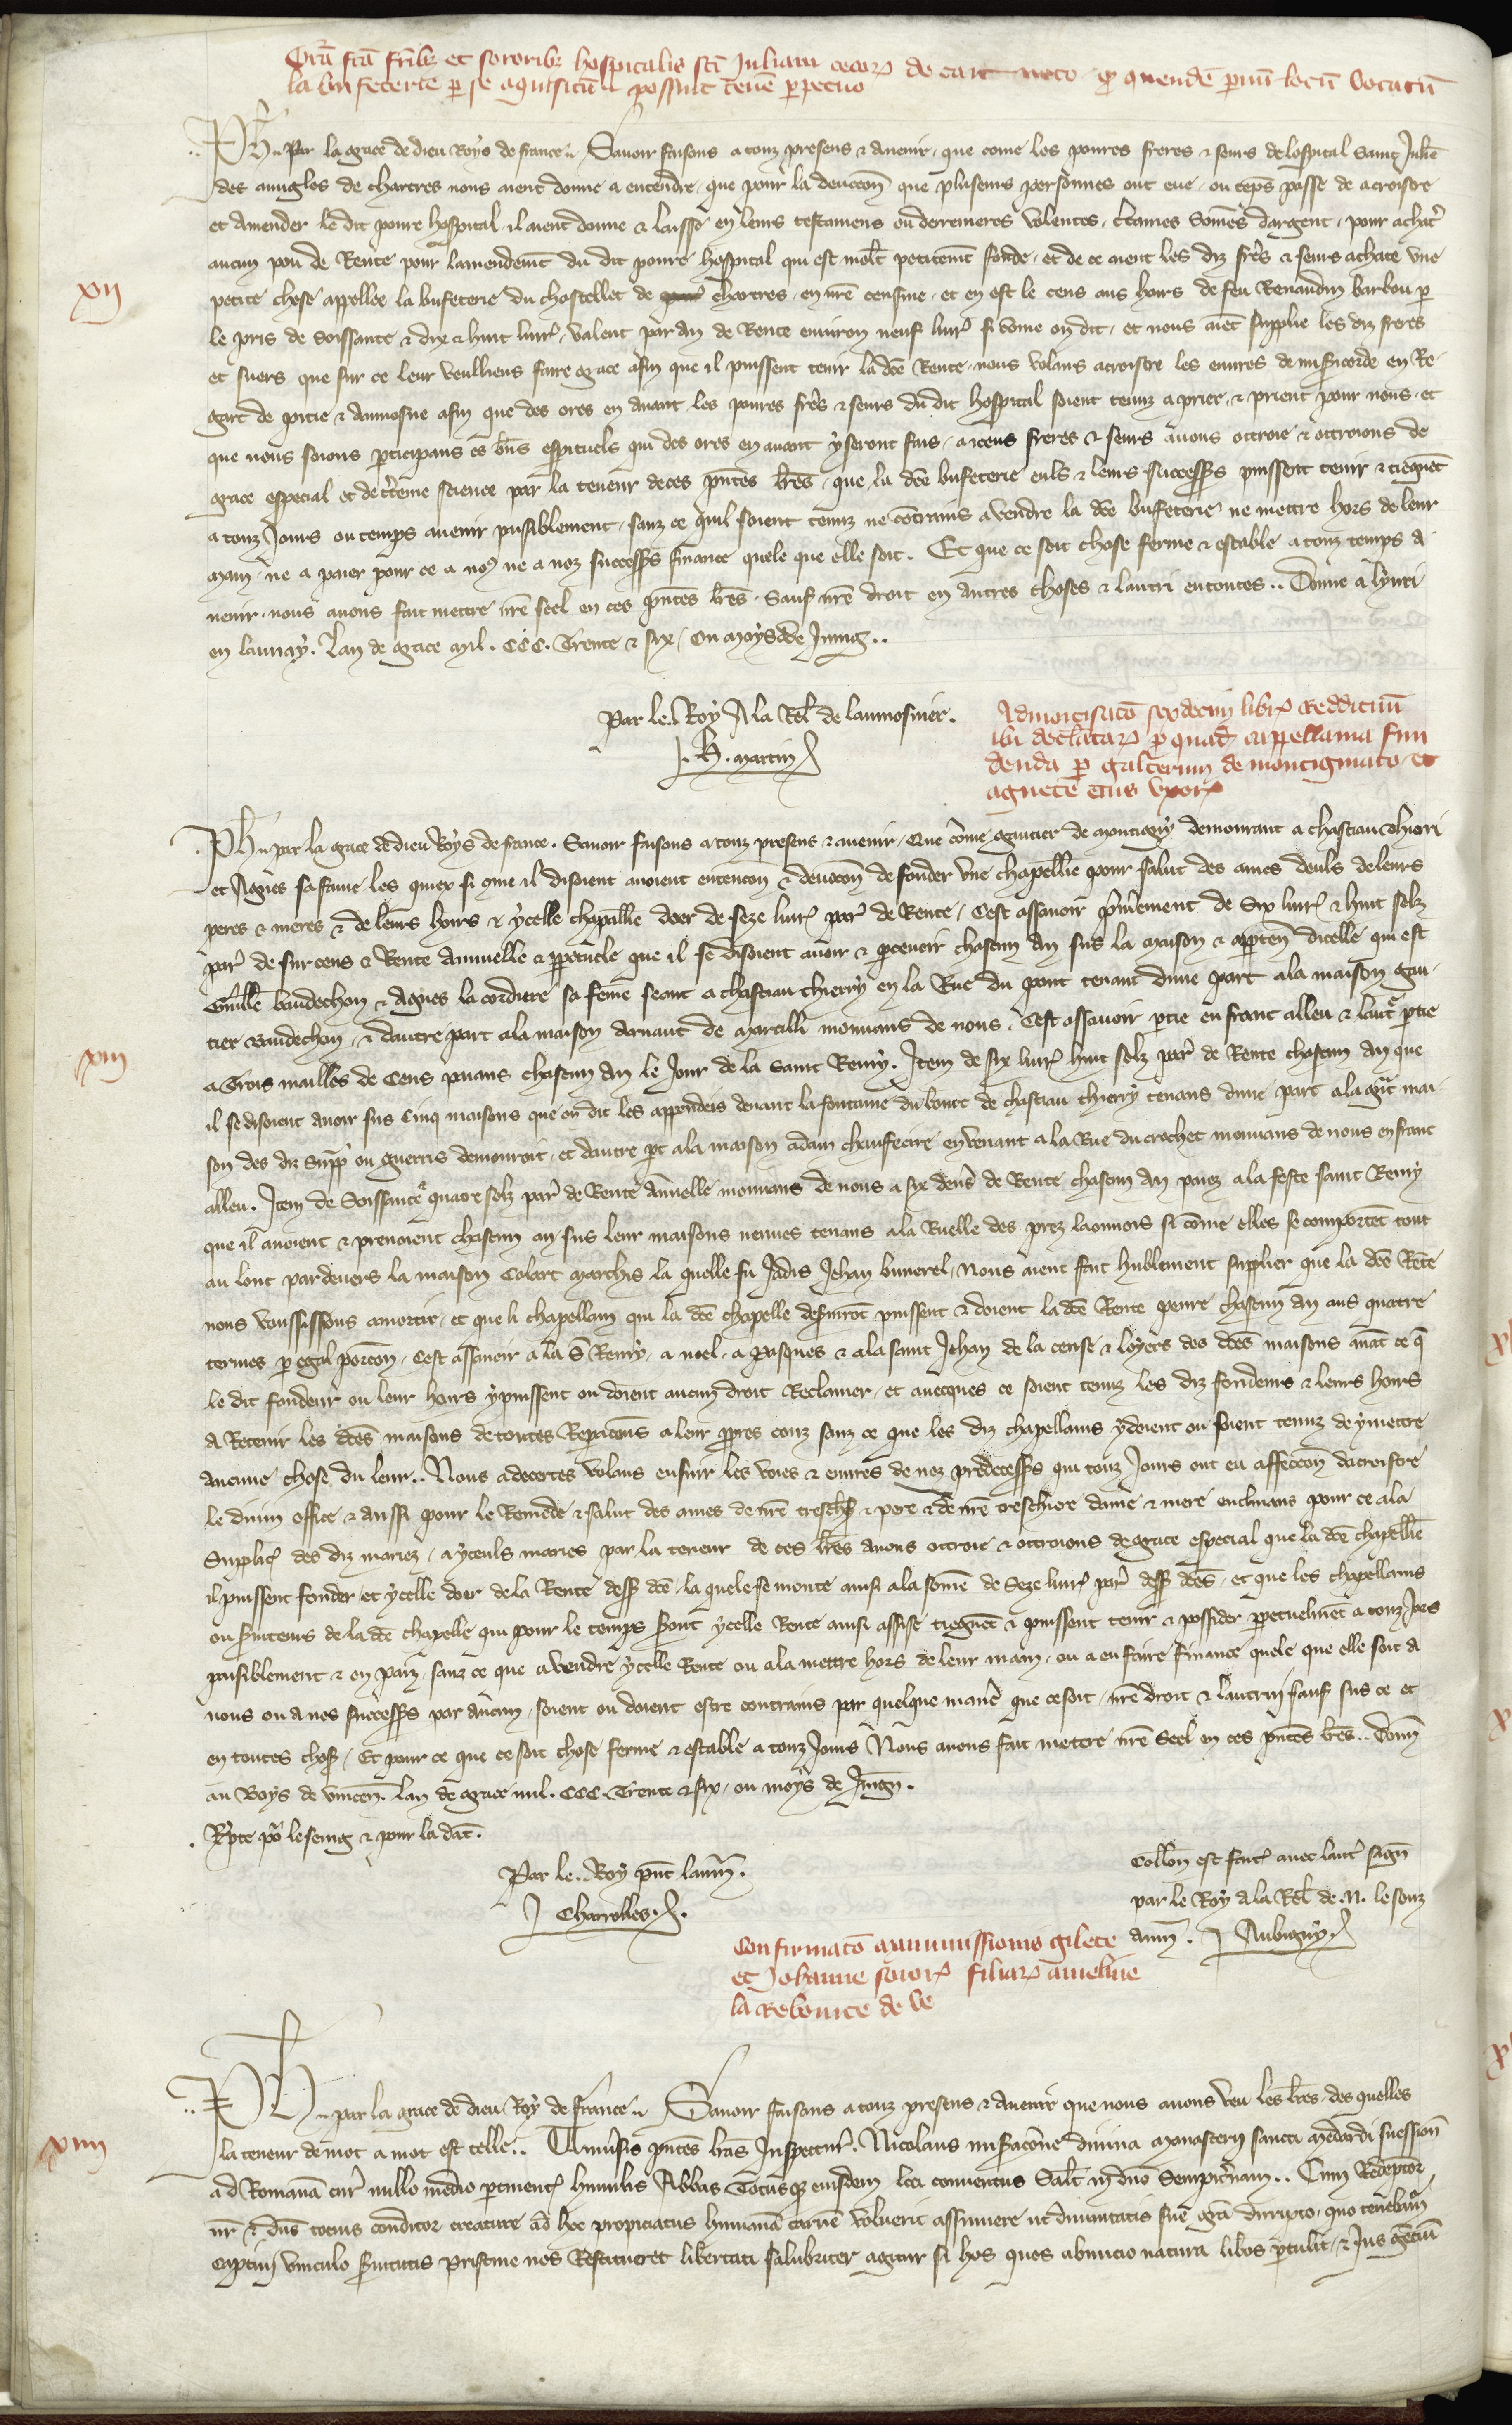 Gra fca frib et sororib hospitalis sci Juliani cecor de carnoto q quende parvu locu vocatu
la bufeterie p se aquisitu possint tenere perpetuo
Ph par la grace de dieu Roys de france Savoir faisons a touz presens & avenir que come les povres freres & seurs de lospital saint Julie
des avugles de chartres nous aient donne a entendre que pour la devocon que pluseurs personnes ont eue ou teps passe de acroistre
et amender le dit povre hospital il aient donne & laisse en leurs testamens ou derrenieres volentes certaines somes dargent pour achat
aucun pou de Rente pour lamendemt du dit povre hospital qui est molt petitemt fonde et de ce aient les diz freres & seurs achate une
petite chose appellee la bufeterie du chastellet de chartres en nre censive et en est le cens aus hoirs de feu Renaudin barbou p
le pris de soissante & dix & huit livr valent par an de Rente environ neuf livr si come on dit et nous aiet supplie les diz freres
et suers que sur ce leur veulliens faire grace afin que il puissent tenir la dce Rente nous volans acroistre les euvres de misericorde en Re
gart de pitie & aumosne afin que des ores en avant les povres freres & seurs du dit hospital soient tenuz a prier & prient pour nous et
que nous soions pticipans es bns espirituels qui des ores en avant y seront fais a iceus freres & seurs avons ottroie & ottroions de
grace especial et de certeine science par la teneur de ces pntes lres que la dce bufeterie euls & leurs successeurs puissent tenir & tiegnet
a touz jours ou temps avenir paisiblement sanz ce quil soient tenuz ne cotrains a vendre la dce bufeterie ne mettre hors de leur
main ne a paier pour ce a nos ne a noz successrs finance quele que elle soit. Et que ce soit chose ferme & estable a touz temps a
venir nous avons fait mettre nre seel en ces pntes lres. Sauf nre droit en autres choses & lautri en toutes. Donne a lyuri
en launay. Lan de grace mil. CCC. Trente & six ou moys de Juing
Par le Roy A la Rel de laumosnier.
H. martin
Admortisaco sexdecim libr reddituu
ibi declarar p quad cappellania fun
denda p galterum de montigniaco et
agnete eius uxor
Ph par la grace de dieu Roys de france. Savoir faisons a touz presens & avenir Que come gautier de montigny demourant a chastiau thierri
et Agnes sa fame les quiex si come il disoient avoient entencon & devocon de fonder une chapellie pour salut des ames deuls de leurs
peres & meres & de leurs hoirs & ycelle chapellie doer de seze livr par de Rente Cest assavoir premierement de Six livr & huit solz
par de sur cens & Rente annuelle & perpetuele que il se disoient avoir & percevoir chascun an sus la maison & apparten dicelle qui est
Guille baudechon & Agnes la cordiere sa feme seant a chastiau thierry en la Rue du pont tenant dune part a la maison gau
tier baudechon & dautre part a la maison darnaut de marcilli mouvans de nous Cest assavoir ptie en franc alleu & laut ptie
a Trois mailles de Cens paians chascun an le jour de la saint Remy. Item de six livr huit solz par de Rente chascun an que
il se disoient avoir sus Cinq maisons que on dit les appendeis devant la fontaine du bourc de chastiau thierry tenans dune part a la grat mai
son des diz Supp ou guerris demouroit et dautre pt a la maison adam chauffecire en venant a la Rue du crochet mouvans de nous en franc
alleu. Item de Soissante quatre solz par de Rente annuelle mouvans de nous a six deniers de Rente chascun an paiez a la feste saint Remy
que il avoient & prenoient chascun an sus leur maisons neuves tenans a la Ruelle des prez laonnois si come elles se comportet tout
au lonc par devers la maison Colart marchis la quelle fu jadis Jehan bunerel Nous aient fait humblement supplier que la dce Rente
nous voussissions amortir et que li chapellain qui la dce chapelle deserviront puissent & doient la dce Rente penre chascun an aus quatre
termes p egal porcon Cest assavoir a la S Remy a noel a pasques & a la saint Jehan de la cense & loyers des dces maisons avat ce q
le dit fondeur ou leur hoirs y puissent ou doient aucun droit Reclamer et avecques ce soient tenuz les diz fondeurs & leurs hoirs
A Retenir les dces maisons de toutes Reparacons a leur ppres couz sanz ce que les diz chapellains y doient ou soient tenuz de y mettre
aucune chose du leur Nous adecertes volans ensuir les voies & euvres de noz predecessrs qui touz Jours ont eu affeccon dacroistre
le divin office & aussi pour le Remede & salut des ames de nre treschier & pere & de nre treschiere dame & mere enclinans pour ce a la
Supplic des diz mariez a yceuls maries par la teneur de ces lres avons ottroie & ottroions de grace especial que la dce chapellie
il puissent fonder et ycelle doer de la Rente dess dce la quele se monte aussi a la some de Seze livr par dess dces et que les chapellains
ou serviteurs de la dce chapelle qui pour le temps seront ycelle Rente ainsi assise tiegnet & puissent tenir & possider ppetuelmet a touz jors
paisiblement & en paiz sanz ce que a vendre ycelle Rente ou a la mettre hors de leur main ou a en faire finance quele que elle soit a
nous ou a nos successrs par aucun soient ou doient estre contrains par quelque maniere que ce soit nre droit & lautrui sauf sus ce et
en toutes choses Et pour ce que ce soit chose ferme & estable a touz Jours Nous avons fait mettre nre Seel en ces pntes lres Donn
au Boys de vincen. lan de grace mil. CCC. Trente & six ou moys de Juign.
Rpte po le seing & pour la dat.
Par le Roy pnt laumn.
Charrolles
Collon est fait avec laut sign
par le Roy a la Rel de N. le souz
aum. Aubigny
Confirmaco manumissionis gilete
et Johanne soror filiar ameline
la Rebource de ve
Ph par la grace de dieu Roy de france Savoir faisons a touz presens & avenir que nous avons veu les lres des quelles
la teneur de mot a mot est telle Universis pntes lras Inspectur. Nicolaus miseracione divina monasterii sancti medardi suession
ad Romana cur nullo medio ptinent humilis Abbas Totusq eiusdem loci conventus Salt in dno Sempiternam Cum Redemptor
nr & dns totius conditor creature ad hoc propiciatus humana carne voluerit assumere ut divinitatis sue gra dirupto quo tenebamr
captivi vinculo servitutis pristine nos Restitueret libertati salubriter agitur si hos quos ab inicio natura libos ptulit & Jus gentiu
xii
xiii
xiiii